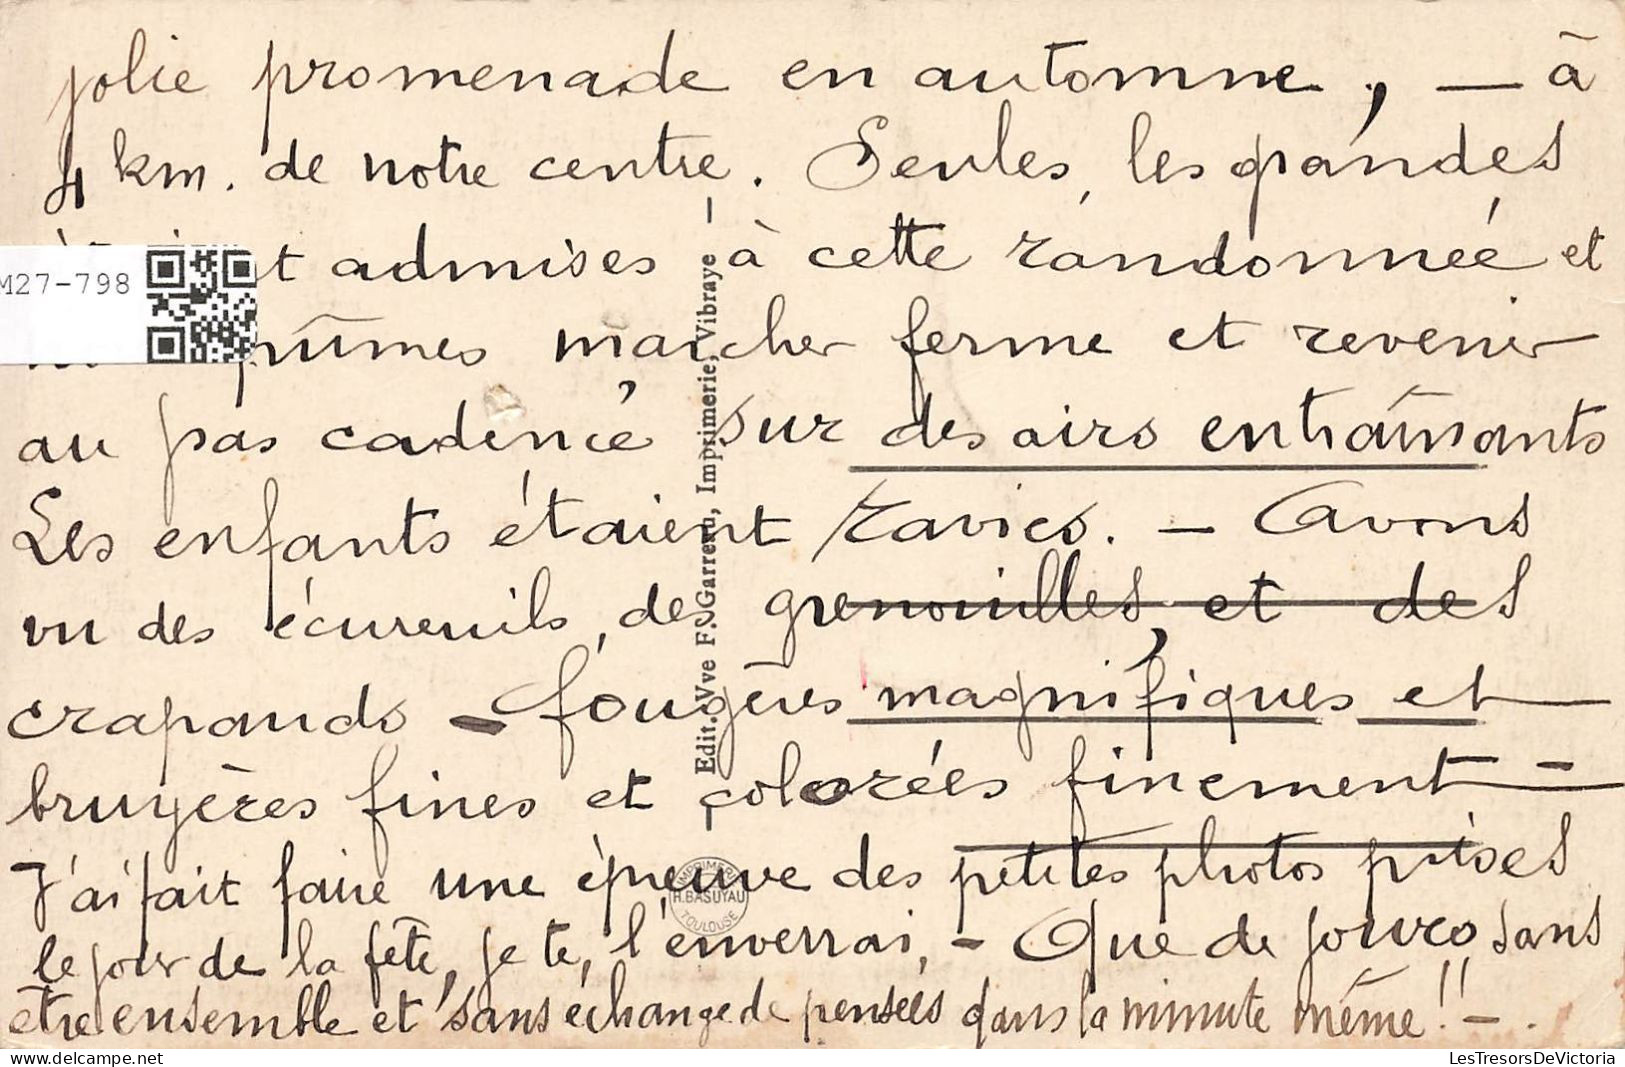 jolie promenade en automne, — à
4 km. de notre centre. Seules, les grandes
admises à cette randonnée et
pûmes marcher ferme et revenir
au pas cadencé sur des airs entraînants
Les enfants étaient ravies. — Avons
vu des écureuils, des grenouilles, et des
crapauds — fougères magnifiques et
bruyères fines et colorées finement —
J'ai fait faire une épreuve des petites photos prises
le jour de la fête, je te l'enverrai, — Que de jours, sans
être ensemble et sans échange de pensées dans la minute même!! — .
M27-798
Edit. Vve F. Garreau, Imprimerie, Vibraye
IMPRIMERIE
H. BASUYAU
TOULOUSE
LesTresorsDeVictoria